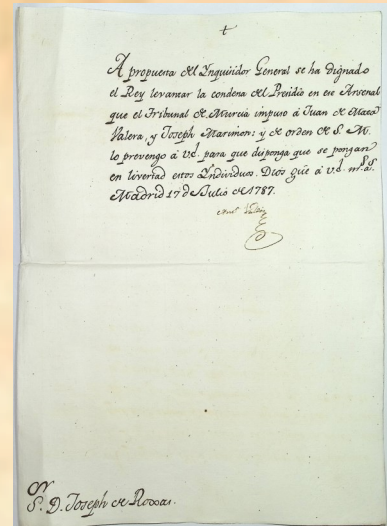 A propuesta del Ynquisidor General se ha dignado
el Rey levantar la condena del Presidio en ese Arsenal
que el Tribunal de Murcia impuso á Juan de Mata
Valera, y Joseph Marimon: y de orden de S. M.
lo prevengo á vd. para que disponga que se pongan
en livertad estos Yndividuos. Dios gûe á vd. ms. as.
Madrid 17 de Julio de 1787.
Antº. Valdés
Sr. D. Joseph de Roxas.